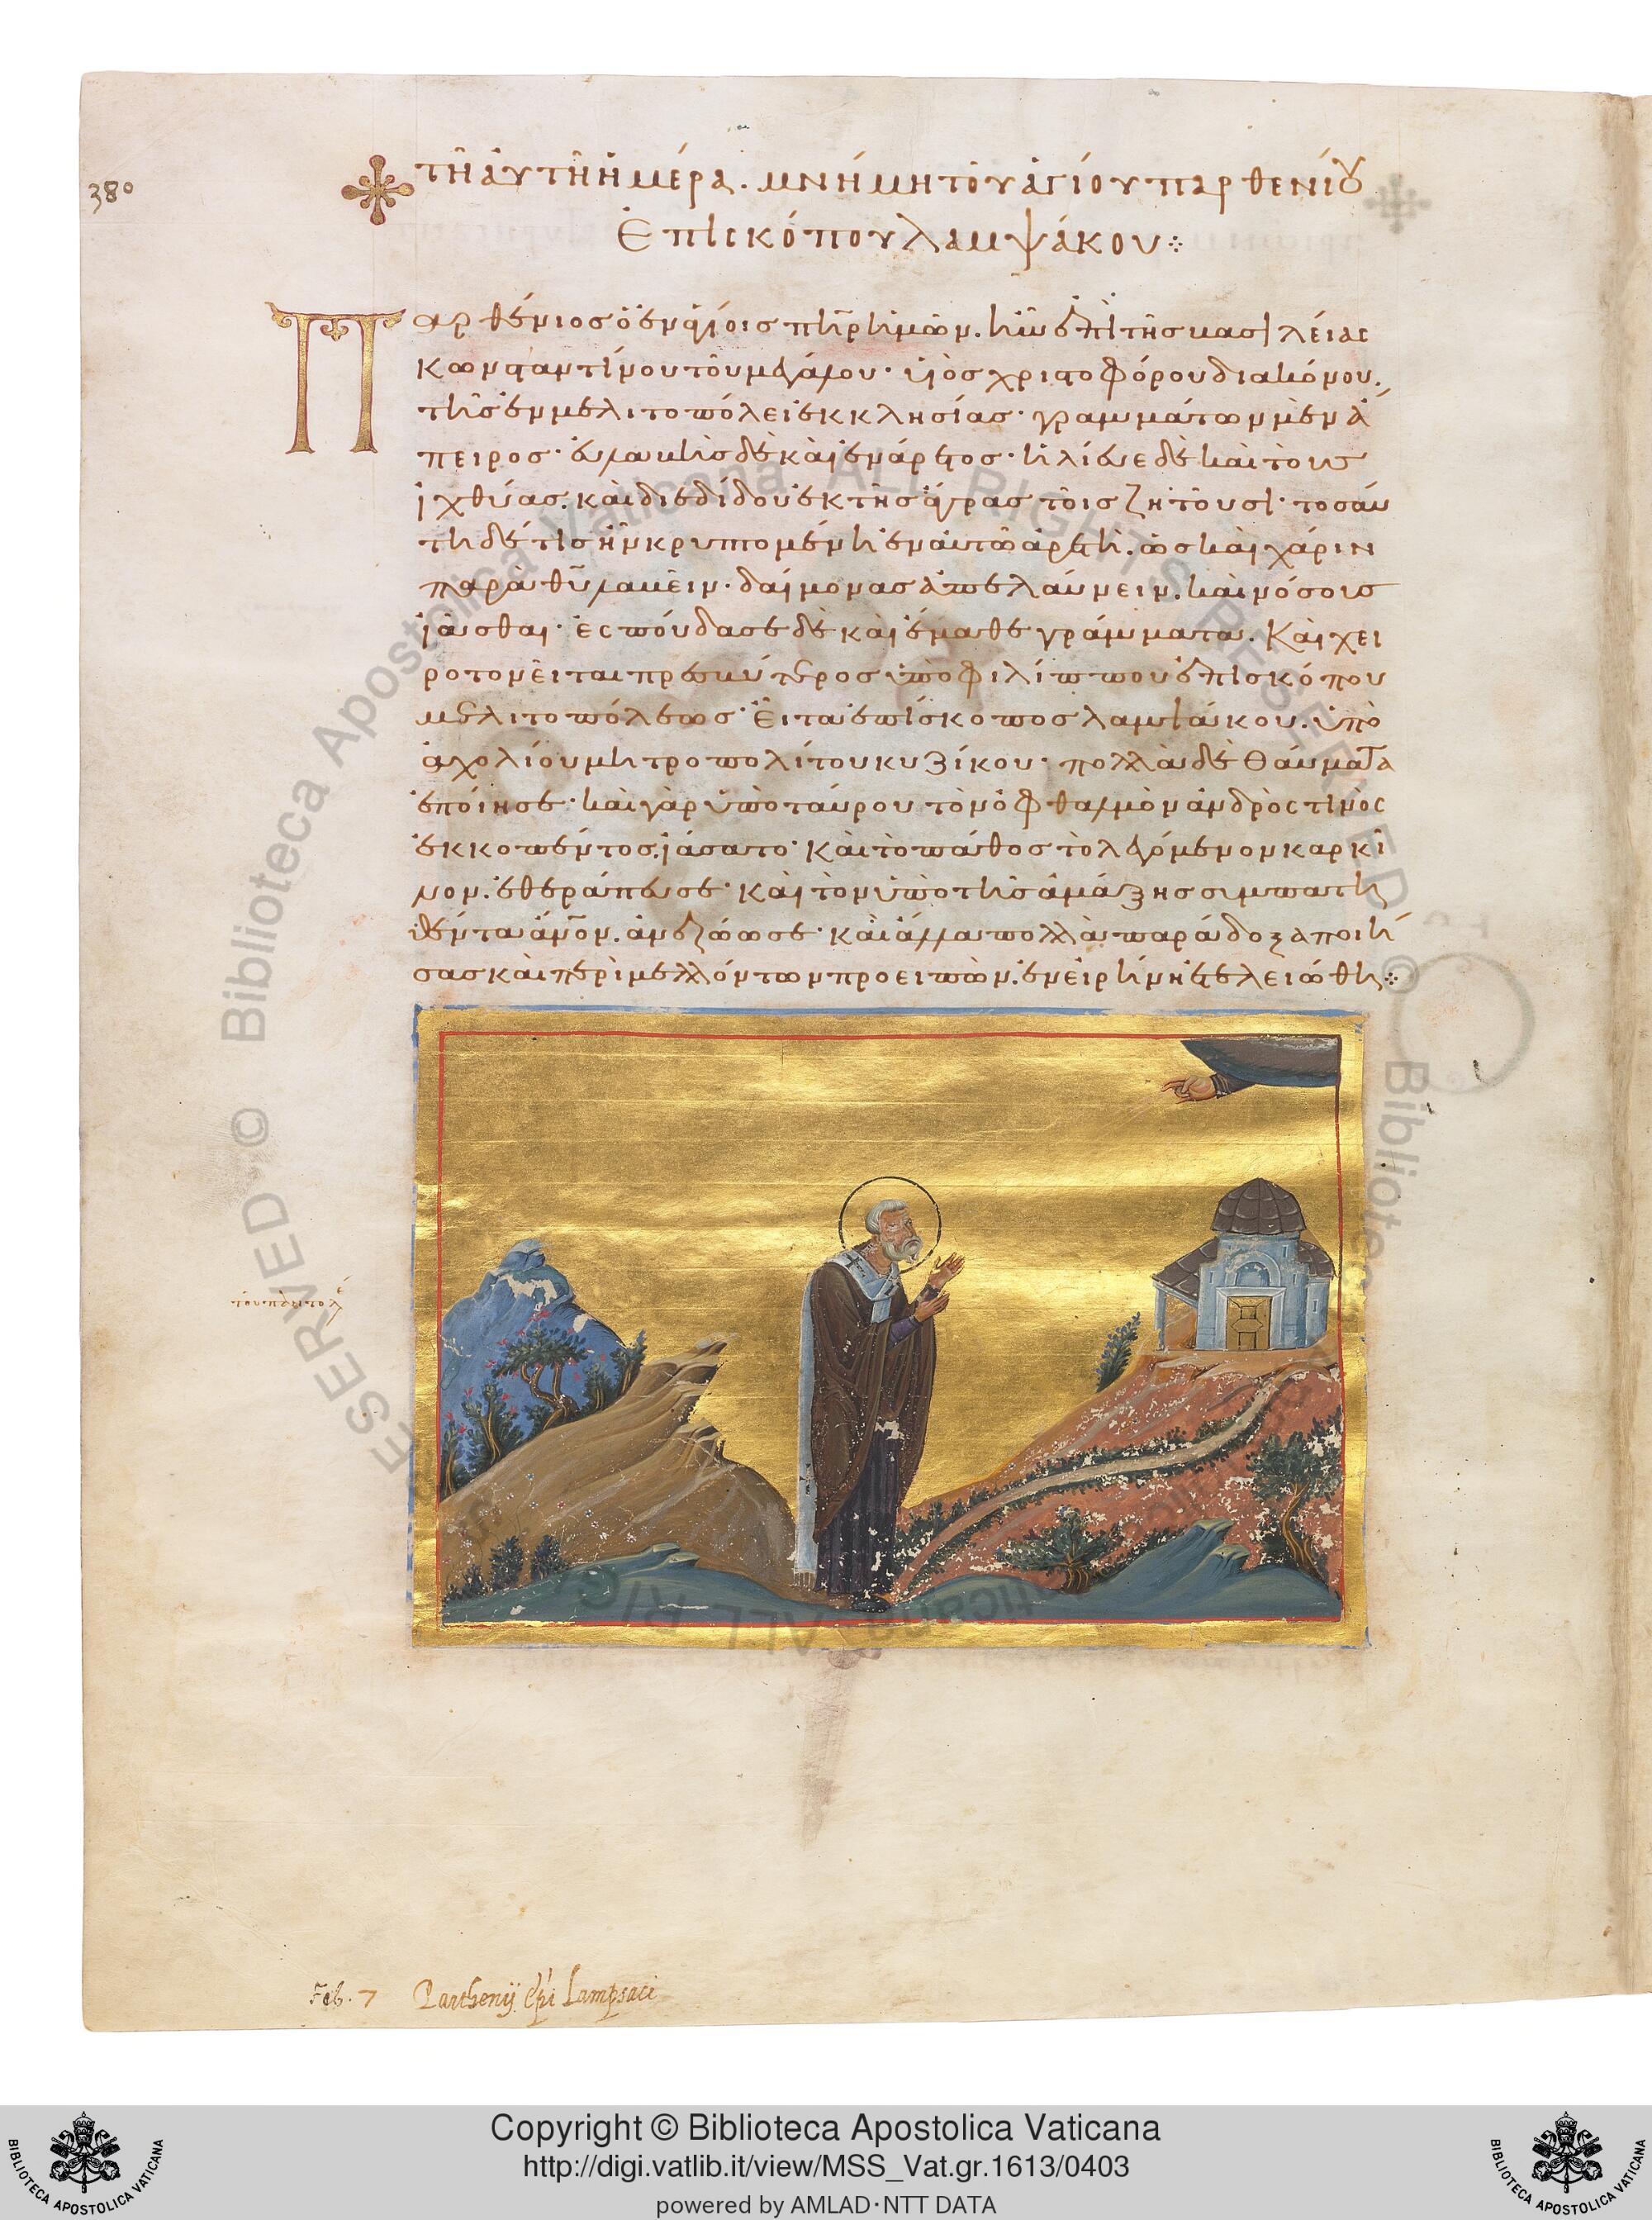 380
τῆ αὐτῆ ἡμέρα. μνήμη τοῦ ἁγίου παρθενίου
ἐπισκόπου λαμψάκου⁘
Παρθένιος ὁ ἐν ἁγίοις πη̅ρ ἡμῶν. ἦν ἐπὶ τῆς βασιλείας
κωνσταντίνου τοῦ μεγάλου· υἱὸς χριστοφόρου διακόνου.
τῆς ἐν μελιτοπόλει ἐκκλησίας· γραμμάτων μὲν ἄ
πειρος· εὐλαβὴς δὲ καὶ ἐνάρετος· ἡλίευε δὲ καὶ τοὺς
ἰχθύας. καὶ διεδίδου ἐκ τῆς ἄγρας τοῖς ζητοῦσι· τοσαύ
τη δέ τις ἦν κρυπτομένη ἐν αὐτῶ ἀρετὴ. ὡς καὶ χάριν
παρὰ θυ̅ λαβεῖν· δαίμονας ἀπελαύνειν. καὶ νόσους
ἰᾶσθαι· ἐσπούδασε δὲ καὶ ἔμαθε γράμματα. καὶ χει
ροτονεῖται πρεσβύτερος ὑπὸ φιλίππου ἐπισκόπου
μελιτοπόλεως· εἶτα ἐπίσκοπος λαμψάκου. ὑπὸ
ἀχολίου μητροπολίτου κυζίκου· πολλὰ δὲ θαύματα
ἐποίησε· καὶ γὰρ ὑπὸ ταύρου τὸν ὀφθαλμὸν ἀνδρός τινος
ἐκκοπέντος. ἰάσατο· καὶ τὸ πάθος τὸ λεγόμενον καρκί
νον. ἐθεράπευσε· καὶ τὸν ὑπὸ τῆς ἁμάξης συμπατη
θέντα ἄνο̅ν. ἀνεζώωσε· καὶ ἄλλα πολλὰ παράδοξα ποιή
σας καὶ περὶ μελλόντων προειπὼν. ἐν εἰρήνη ἐτελειώθη⁘
Feb. 7 Parthenij Epi Lampsaci
Copyright © Biblioteca Apostolica Vaticana
http://digi.vatlib.it/view/MSS_Vat.gr.1613/0403
powered by AMLAD·NTT DATA
BIBLIOTECA APOSTOLICA VATICANA
BIBLIOTECA APOSTOLICA VATICANA